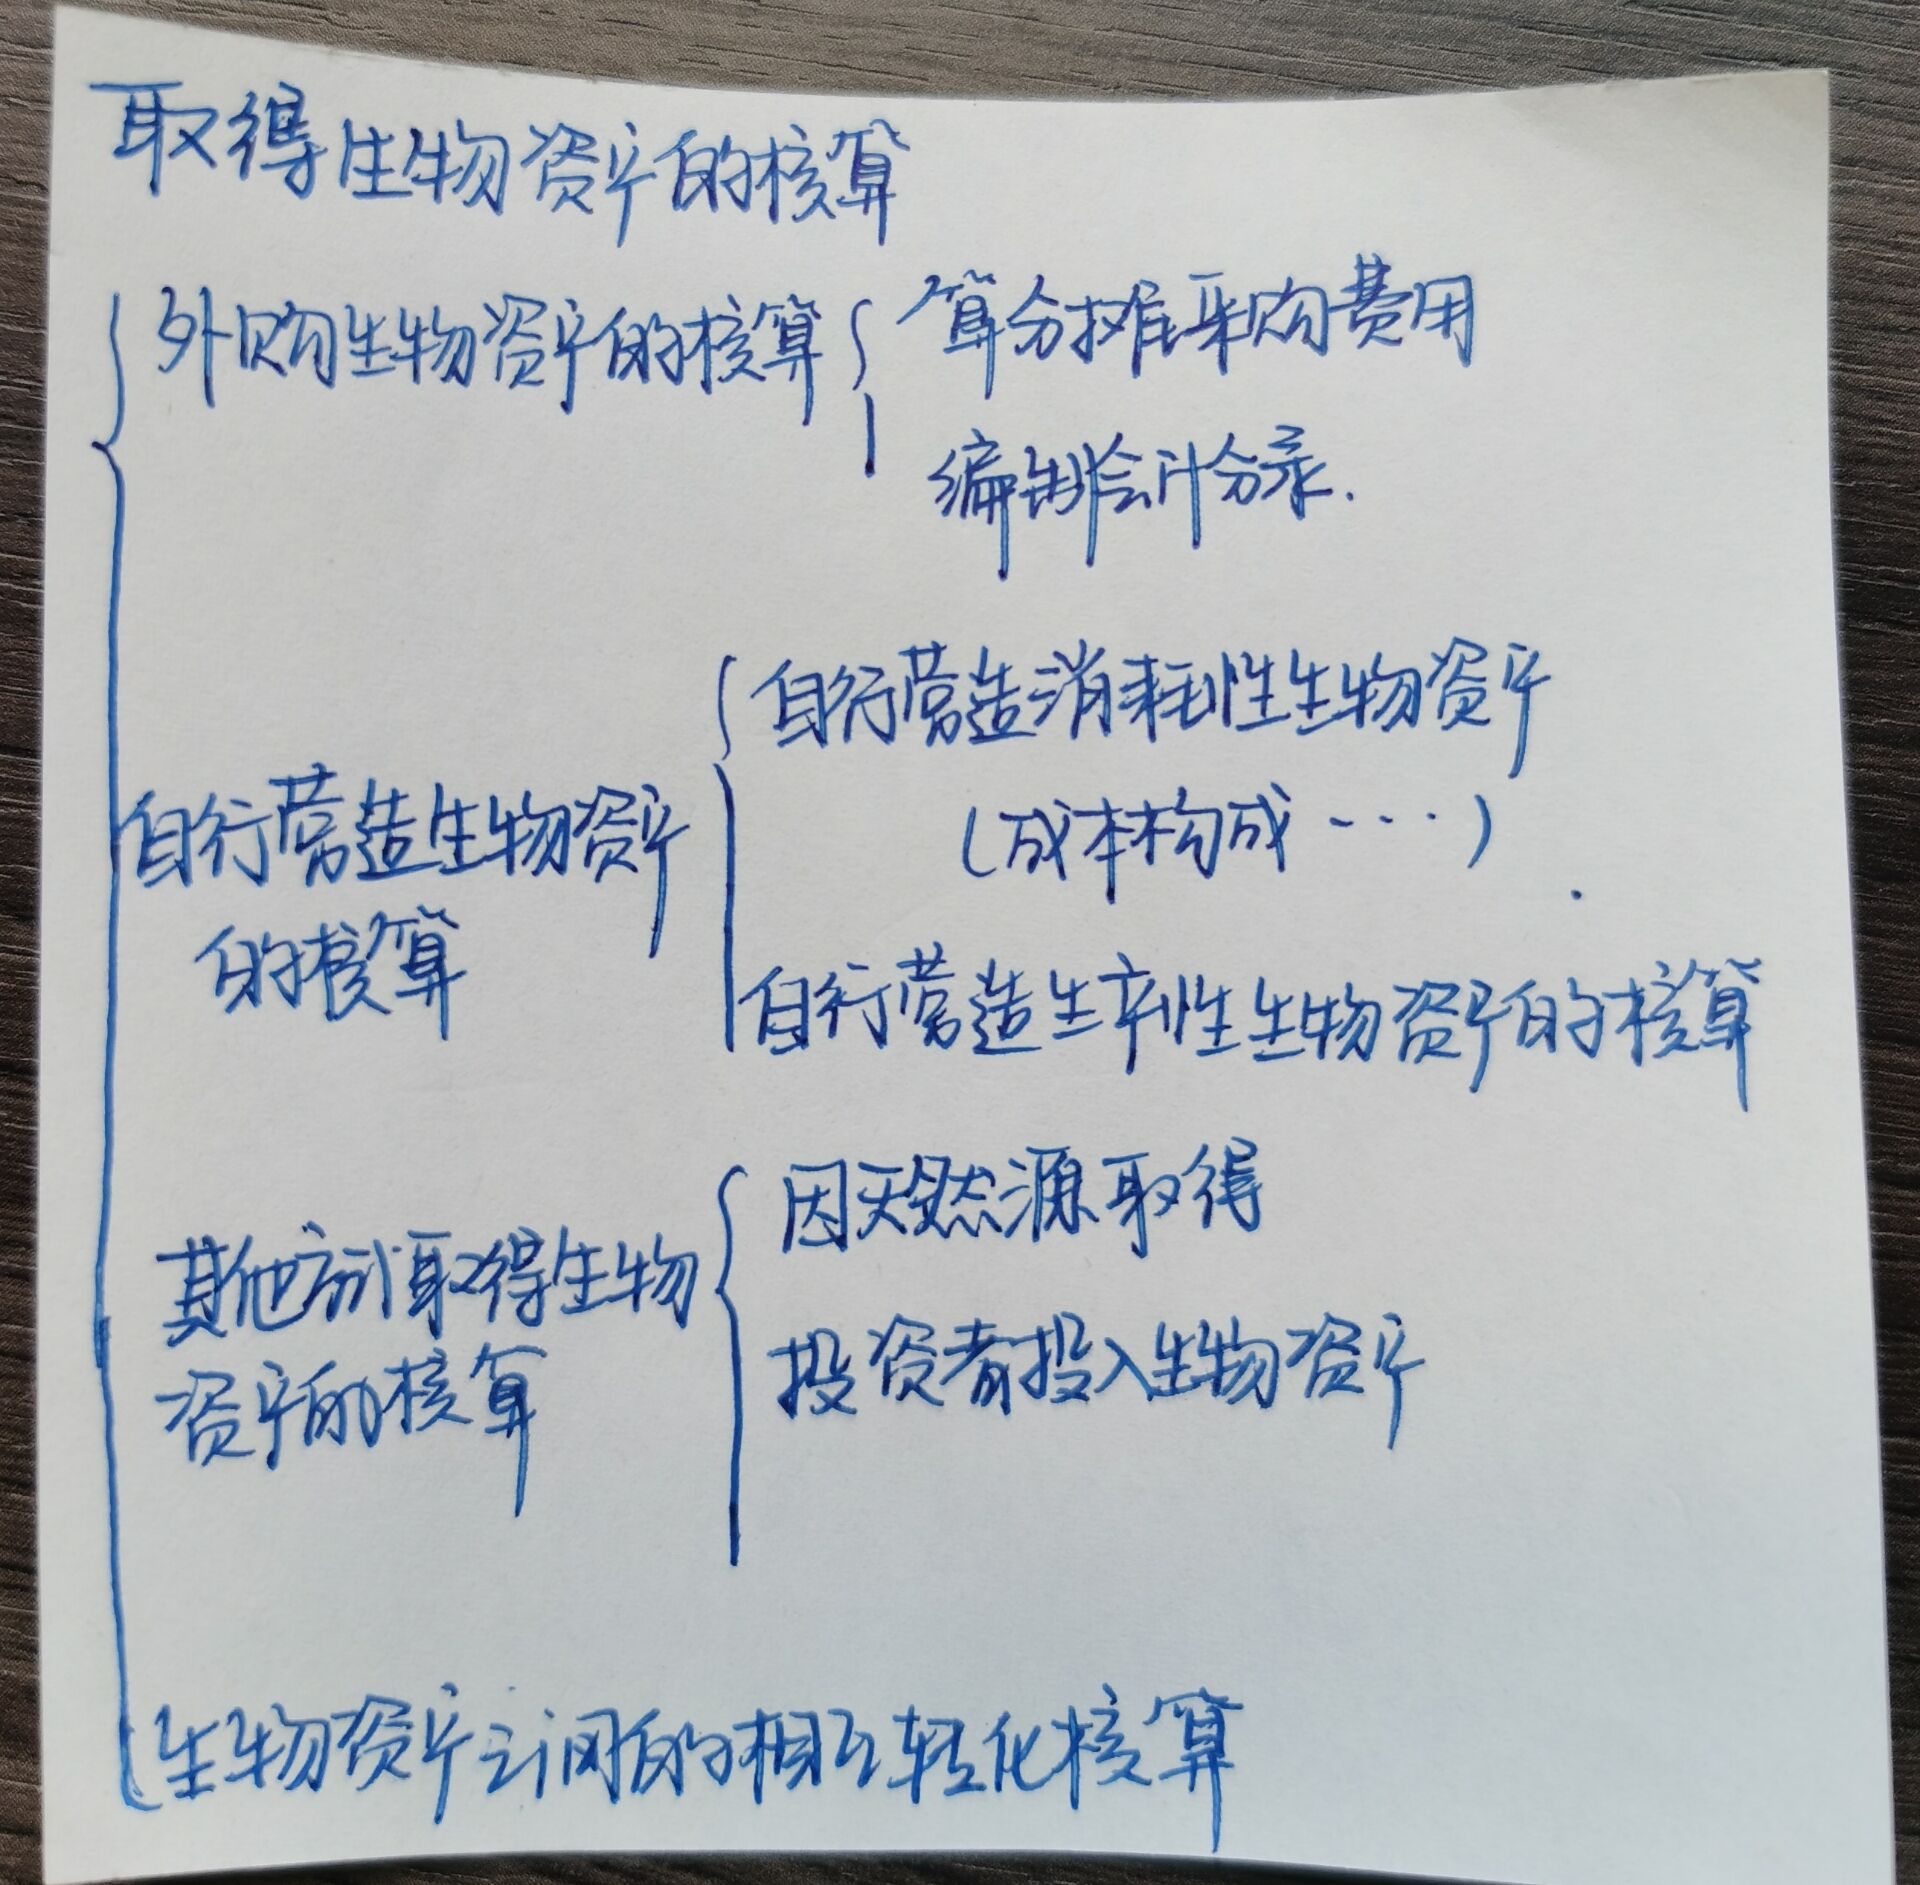 取得生物资产的核算
外购生物资产的核算
算分摊采购费用
编制会计分录.
自行营造生物资产
的核算
自行营造消耗性生物资产
(成本构成…)
自行营造生产性生物资产的核算
其他方式取得生物
资产的核算
因天然源取得
投资者投入生物资产
生物资产之间的相互转化核算